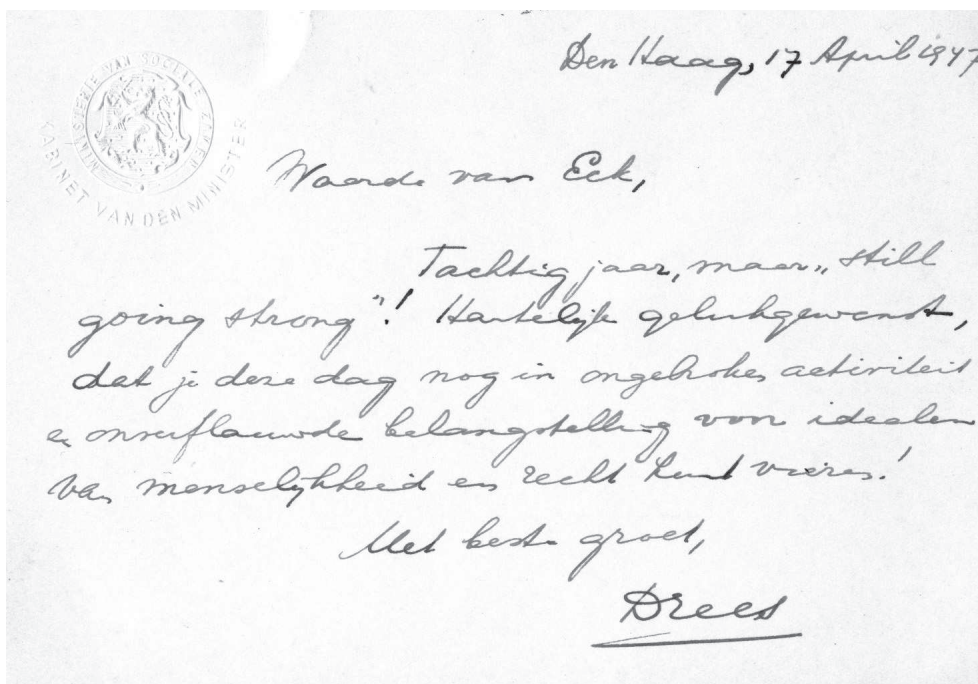 MINISTERIE VAN SOCIALE ZAKEN
KABINET VAN DEN MINISTER
Den Haag, 17 April 1947
Waarde van Eck,
Tachtig jaar, maar „still
going strong"! Hartelijk gelukgewenst,
dat je deze dag nog in ongebroken activiteit
en onverflauwde belangstelling voor idealen
van menselijkheid en recht kunt vieren!
Met beste groet,
Drees